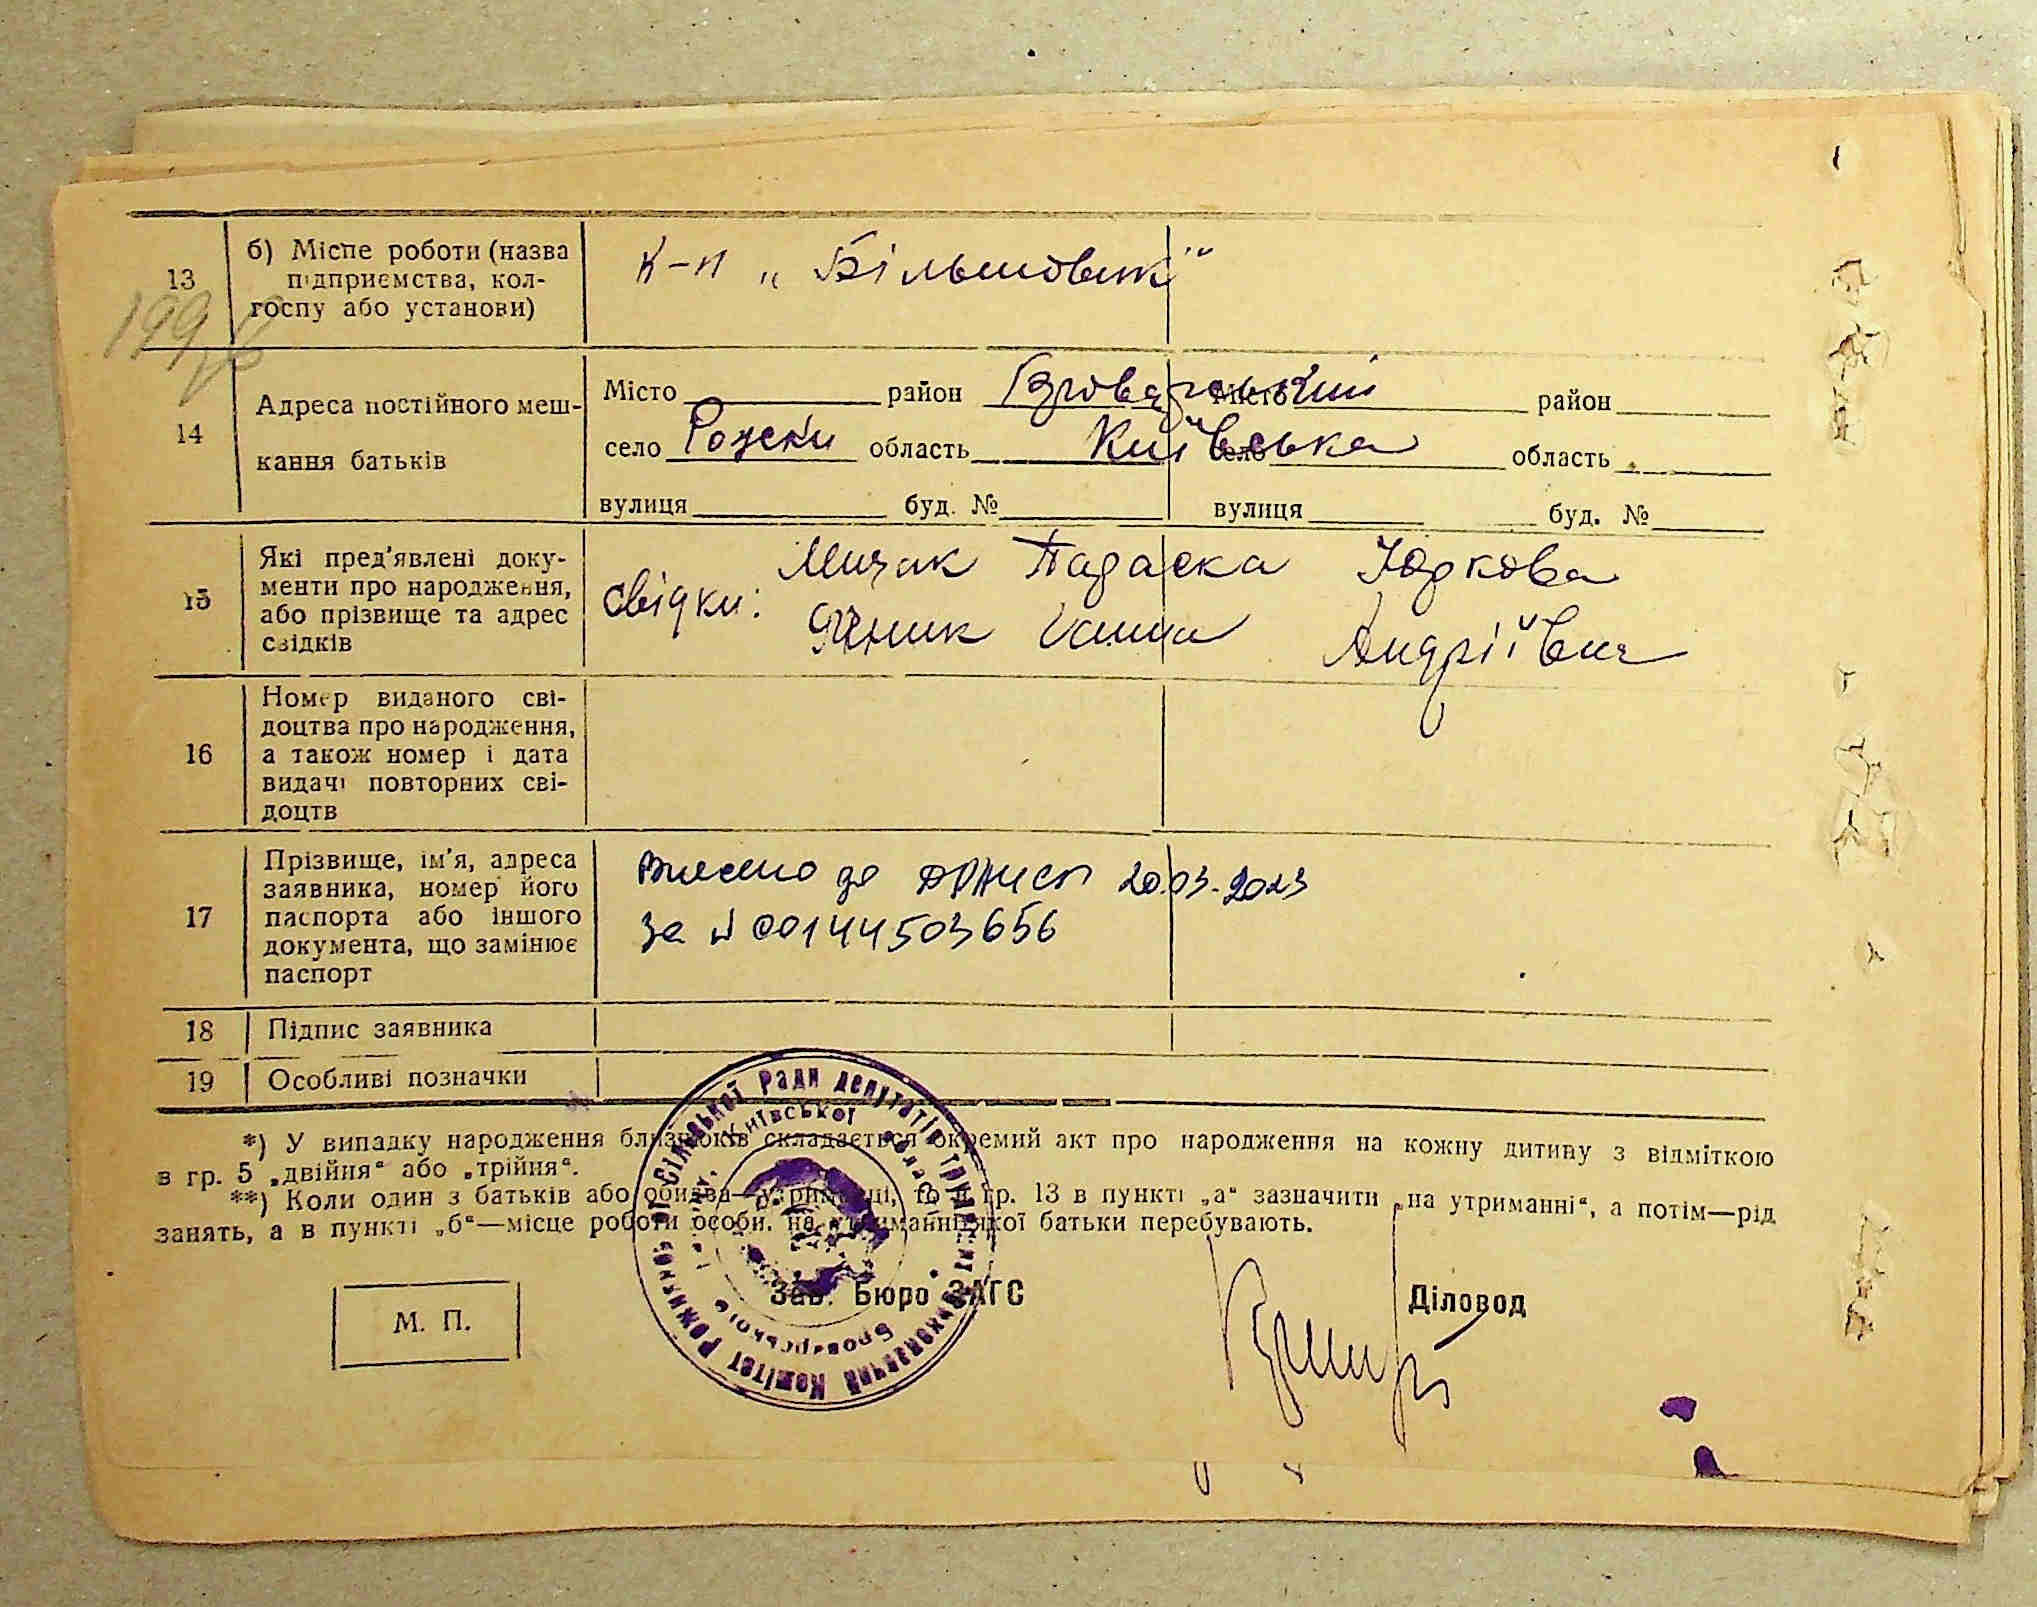 13
б) Місце роботи (назва
підприємства, кол-
госпу або установи)
К-п „Більшовик"
14
Адреса постійного меш-
кання батьків
Місто район Броварський Місто район
село Рожни область Київська село область
вулиця буд. № вулиця буд. №
15
Які пред'явлені доку-
менти про народження,
або прізвище та адрес
свідків
свідки: Мицак Параска Юркова
Ганна Андріївна
16
Номер виданого сві-
доцтва про народження,
а також номер і дата
видачі повторних сві-
доцтв
17
Прізвище, ім'я, адреса
заявника, номер його
паспорта або іншого
документа, що замінює
паспорт
Внесено до ДРАЦСГ 20.03.2023
за № 00144503656
18 Підпис заявника
19 Особливі позначки
*) У випадку народження близнюків складається окремий акт про народження на кожну дитину з відміткою
в гр. 5 „двійня“ або „трійня“.
**) Коли один з батьків або обидва—утриманці, то в гр. 13 в пункті „а“ зазначити „на утриманні“, а потім—рід
занять, а в пункті „б“—місце роботи особи, на утриманні якої батьки перебувають.
М. П.
Зав. Бюро ЗАГС
Діловод
Виконавчий Комітет Рожнівської Сільської Ради депутатів трудящих
Броварського Київської області